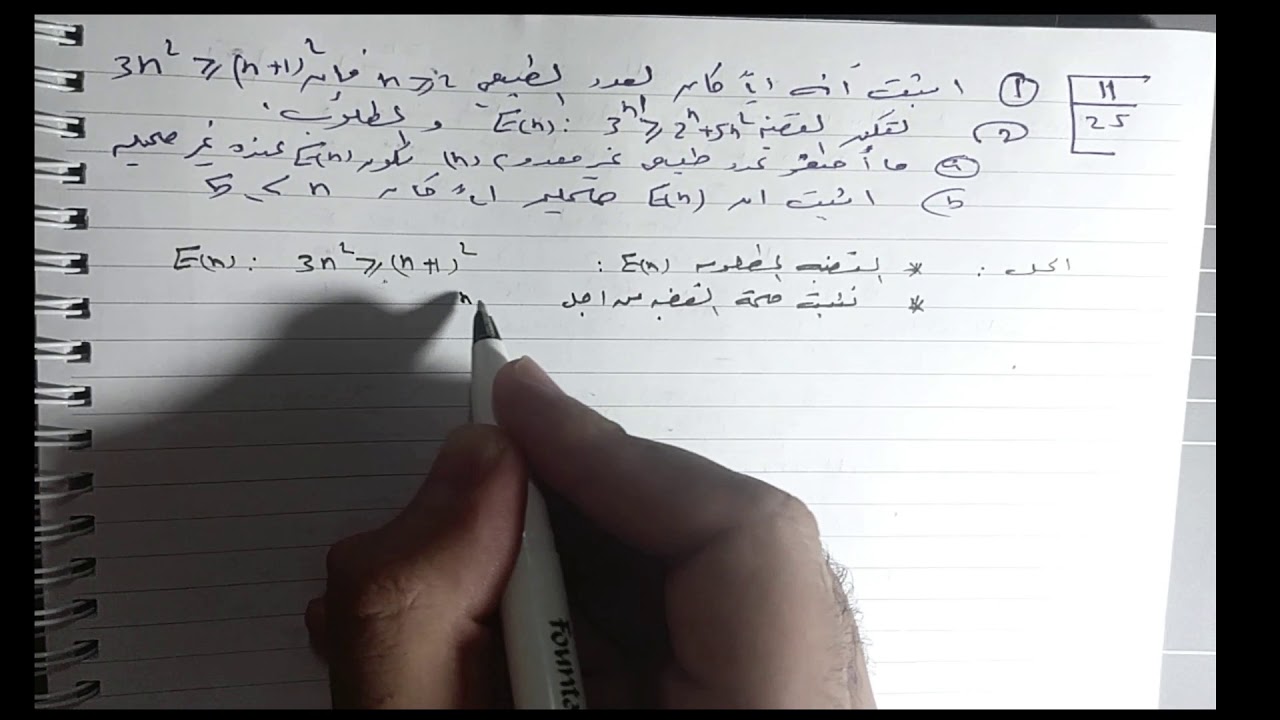 11
25
① اثبت أنه أياً كان العدد الطبيعي n ⩾ 2 فإن 3n² ⩾ (n+1)²
② لتكن القضية E(n): 3ⁿ ⩾ 2ⁿ+5n² والمطلوب:
ⓐ ما أصغر عدد طبيعي غير معدوم (n) تكون E(n) عنده غير صحيحة
b) اثبت ان E(n) صحيحة اياً كان n ⩾ 5
الحل: * القضية المطلوبة E(n): E(n): 3n² ⩾ (n+1)²
* نثبت صحة القضية من اجل n
Founta